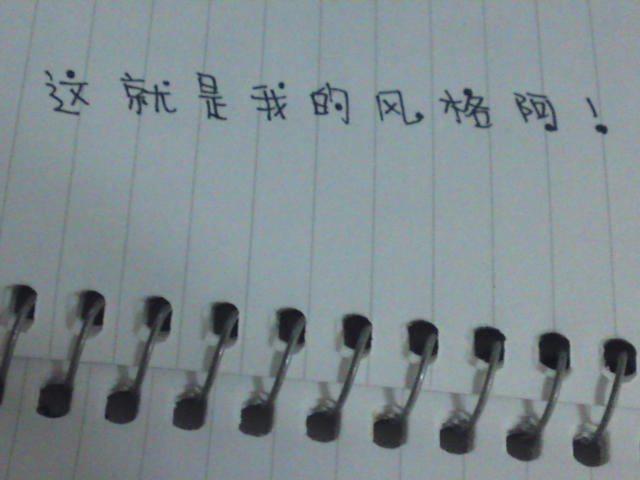 这就是我的风格阿!